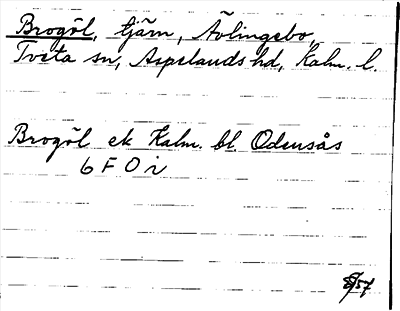 Brogöl, tjärn, Åvlingebo,
Tveta sn, Aspelands hd, Kalm. l.
Brogöl ek Kalm. bl. Odensås
6 F 0 i